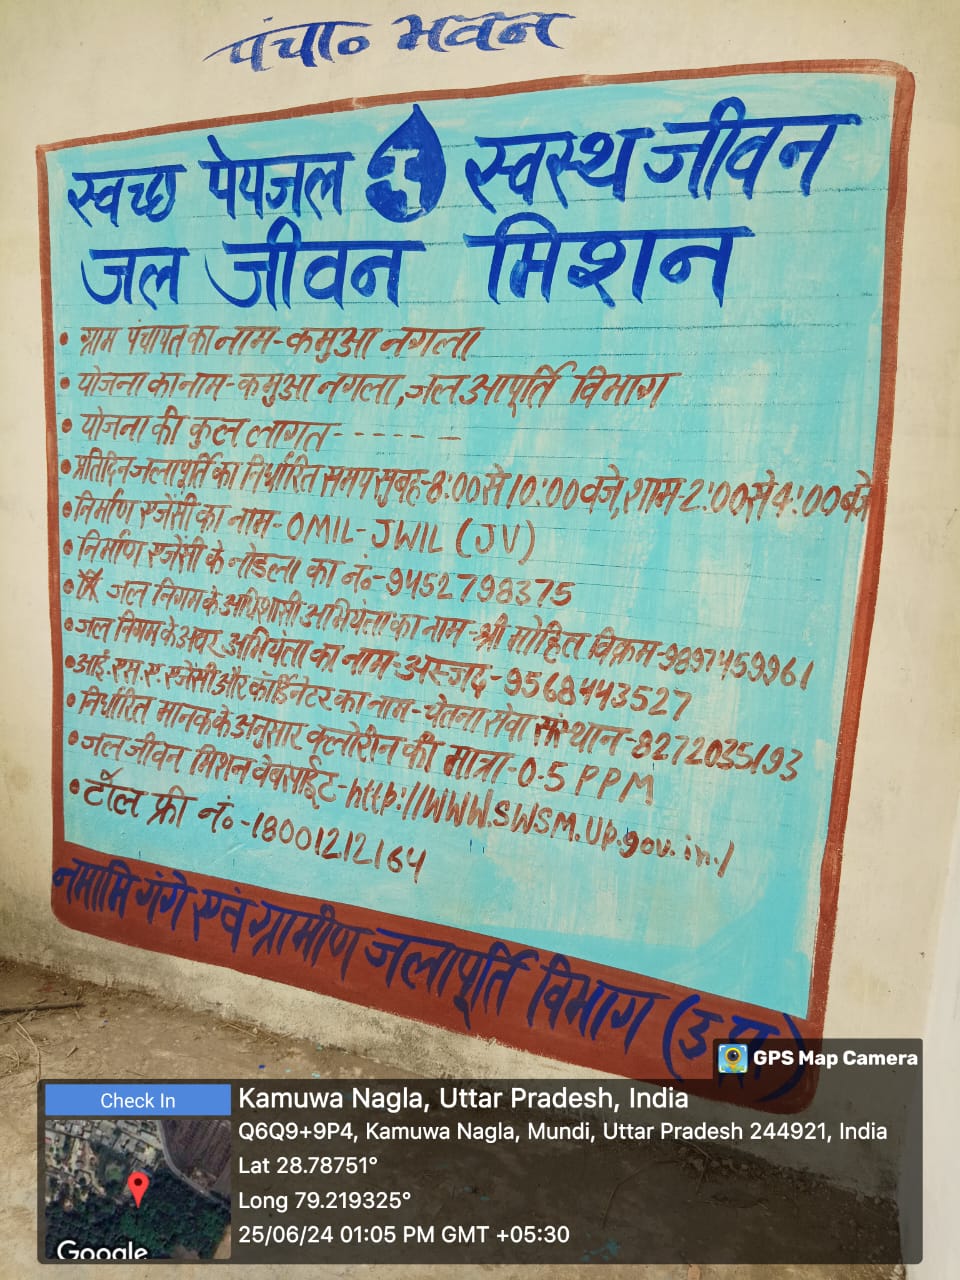 पंचा० भवन
स्वच्छ पेयजल स्वस्थ जीवन
जल जीवन मिशन
• ग्राम पंचायत का नाम-कमुआ नगला
• योजना का नाम-कमुआ नगला, जल आपूर्ति विभाग
• योजना की कुल लागत- - - - - -
• प्रतिदिन जलापूर्ति का निर्धारित समय सुबह-8:00 से 10:00 बजे, शाम-2:00 से 4:00 बजे
• निर्माण एजेंसी का नाम-OMIL-JWIL (JV)
• निर्माण एजेंसी के नोडला का नं०-9452798375
• जल निगम के अधिशासी अभियंता का नाम-श्री मोहित विक्रम-9897459961
• जल निगम के अवर अभियंता का नाम-अस्जद-9568443527
• आई.एस.ए. एजेंसी और कॉर्डिनेटर का नाम-चेतना सेवा संस्थान-8272035193
• निर्धारित मानक के अनुसार क्लोरीन की मात्रा-0-5 PPM
• जल जीवन मिशन वेबसाईट-http://WWW.SWSM.UP.gov.in./
• टॉल फ्री नं०-18001212164
नमामि गंगे एवं ग्रामीण जलापूर्ति विभाग (उ.प्र.)
GPS Map Camera
Check In
Kamuwa Nagla, Uttar Pradesh, India
Q6Q9+9P4, Kamuwa Nagla, Mundi, Uttar Pradesh 244921, India
Lat 28.78751°
Long 79.219325°
25/06/24 01:05 PM GMT +05:30
Google